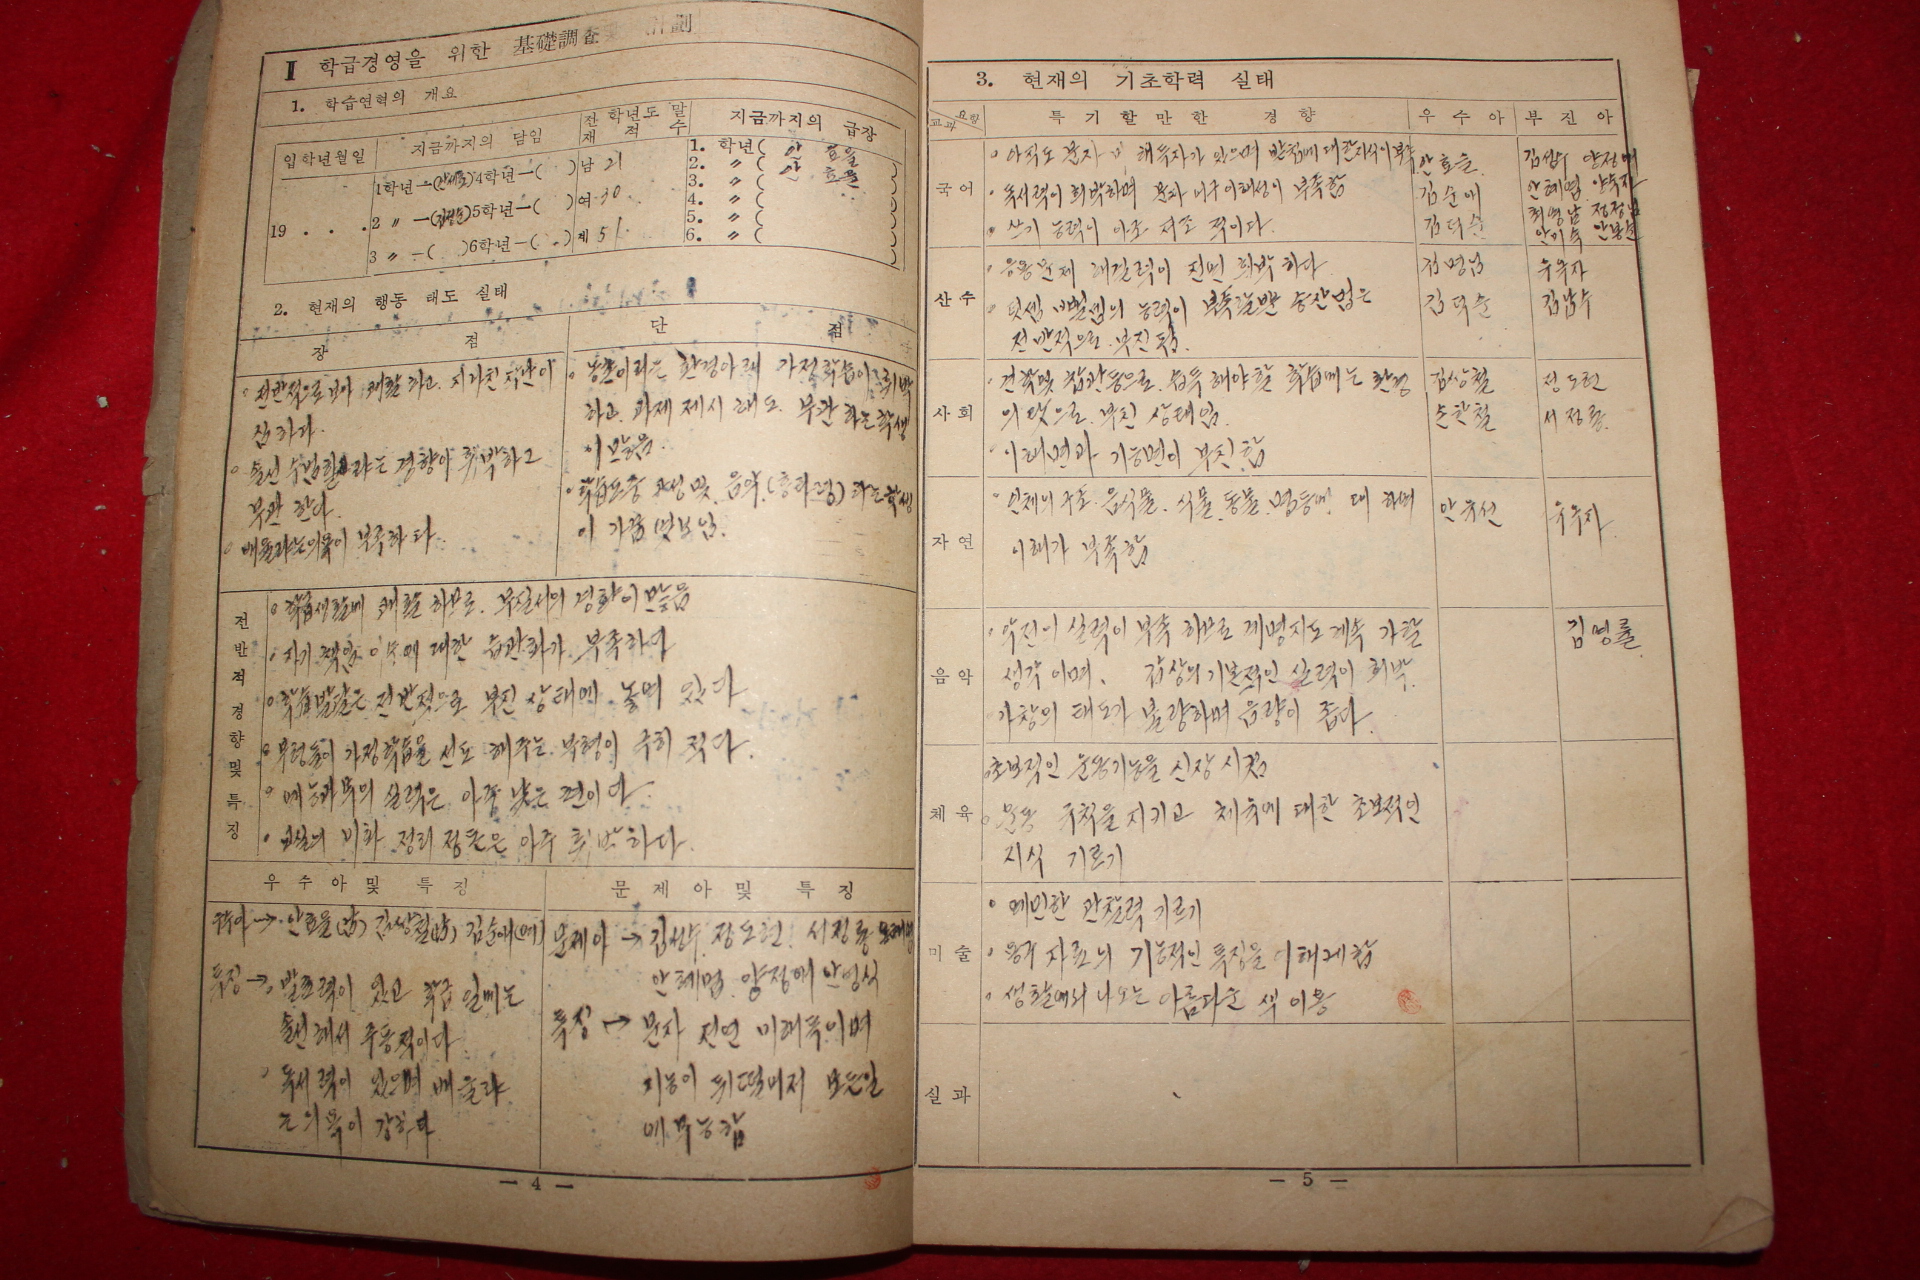 Ⅱ 학급경영을 위한 基礎調査 計劃
1. 학습연혁의 개요
입학년월일 지금까지의 담임 전학년도 말 재적수 지금까지의 급장
19 . . .
1학년—( ) 4학년—( ) 남 21
2 〃 —( ) 5학년—( ) 여 30
3 〃 —( ) 6학년—( ) 계 51
1. 학년( 안 효을 )
2. 〃 ( 안 효을 )
3. 〃 ( )
4. 〃 ( )
5. 〃 ( )
6. 〃 ( )
2. 현재의 행동 태도 실태
장 점
단 점
◦ 전반적으로 보아 쾌활하고. 지나친 장난이
심하다.
◦ 솔선수범할라는 경향이 희박하고
부관 한다.
◦ 배울라는 의욕이 부족하다.
◦ 농촌이라는 환경아래 가정학습이 희박
하고. 과제 제시 해도. 부관 하는 학생
이 많음.
이 가끔 엿보임.
전반적 경향 및 특징
◦ 학습생활에 쾌활 하므로. 무질서의 경향이 많음
◦ 자기 책임 이수에 대한 습관화가 부족하여
◦ 학습발달은 전반적으로 부진 상태에 놓여 있다
◦ 부형들이 가정학습을 선도 해주는 부형이 극히 적다.
◦ 예능과목의 실력은 아주 낮은 편이다.
◦ 교실의 미화 정리 정돈은 아주 희박하다.
우수아 및 특징
문제아 및 특징
우수아 → 안효을(남) 김상철(남) 김순애(여)
특징 → 발표력이 있고 학급 일에는
솔선해서 주동적이다
독서력이 있으며 배울라
는 의욕이 강하다
문제아 → 김성수 정도현. 서정룡
안혜영. 양정애 안영식
특징 → 문자 전연 미해득이며
지능이 뒤떨어져 모든일
에 무능함
— 4 —
3. 현재의 기초학력 실태
교과 요항 특기할만한 경향 우수아 부진아
국어
◦ 아직도 문자 미 해득자가 있으며 받침에 대한 지식이 부족
◦ 독서력이 희박하며 문자 어구 이해성이 부족함
◦ 쓰기 능력이 아주 저조 적이다.
안효을.
김순애
김덕순
김성수 양정애
안혜영 양옥자
최영남 정정님
안미숙
산수
◦ 응용문제 해결력이 전연 희박하다
◦ 덧셈 뺄셈의 능력이 부족할뿐 승산법은
전반적으로 부진 함.
김덕순
우옥자
김남수
사회
의 탓으로. 부진 상태임.
◦ 이해면과 기능면이 부진함
김상철
손한철
정도현
서정룡
자연
◦ 인체의 구조. 음식물. 식물. 동물. 등에 대하여
이해가 부족함
우옥자
음악
◦ 악전의 실력이 부족 하므로 계명지도 계속 가할
생각 이며. 감상의 기본적인 실력이 희박.
가창의 태도가 불량하며 음량이 좁다.
김명률
체육
◦ 초보적인 운동기능을 신장 시킴
◦ 운동 규칙을 지키고 체육에 대한 초보적인
지식 기르기
미술
◦ 예민한 관찰력 기르기
◦ 용구 자료의 기능적인 특징을 이해케함
◦ 생활에서 나오는 아름다운 색 이용
실과
— 5 —